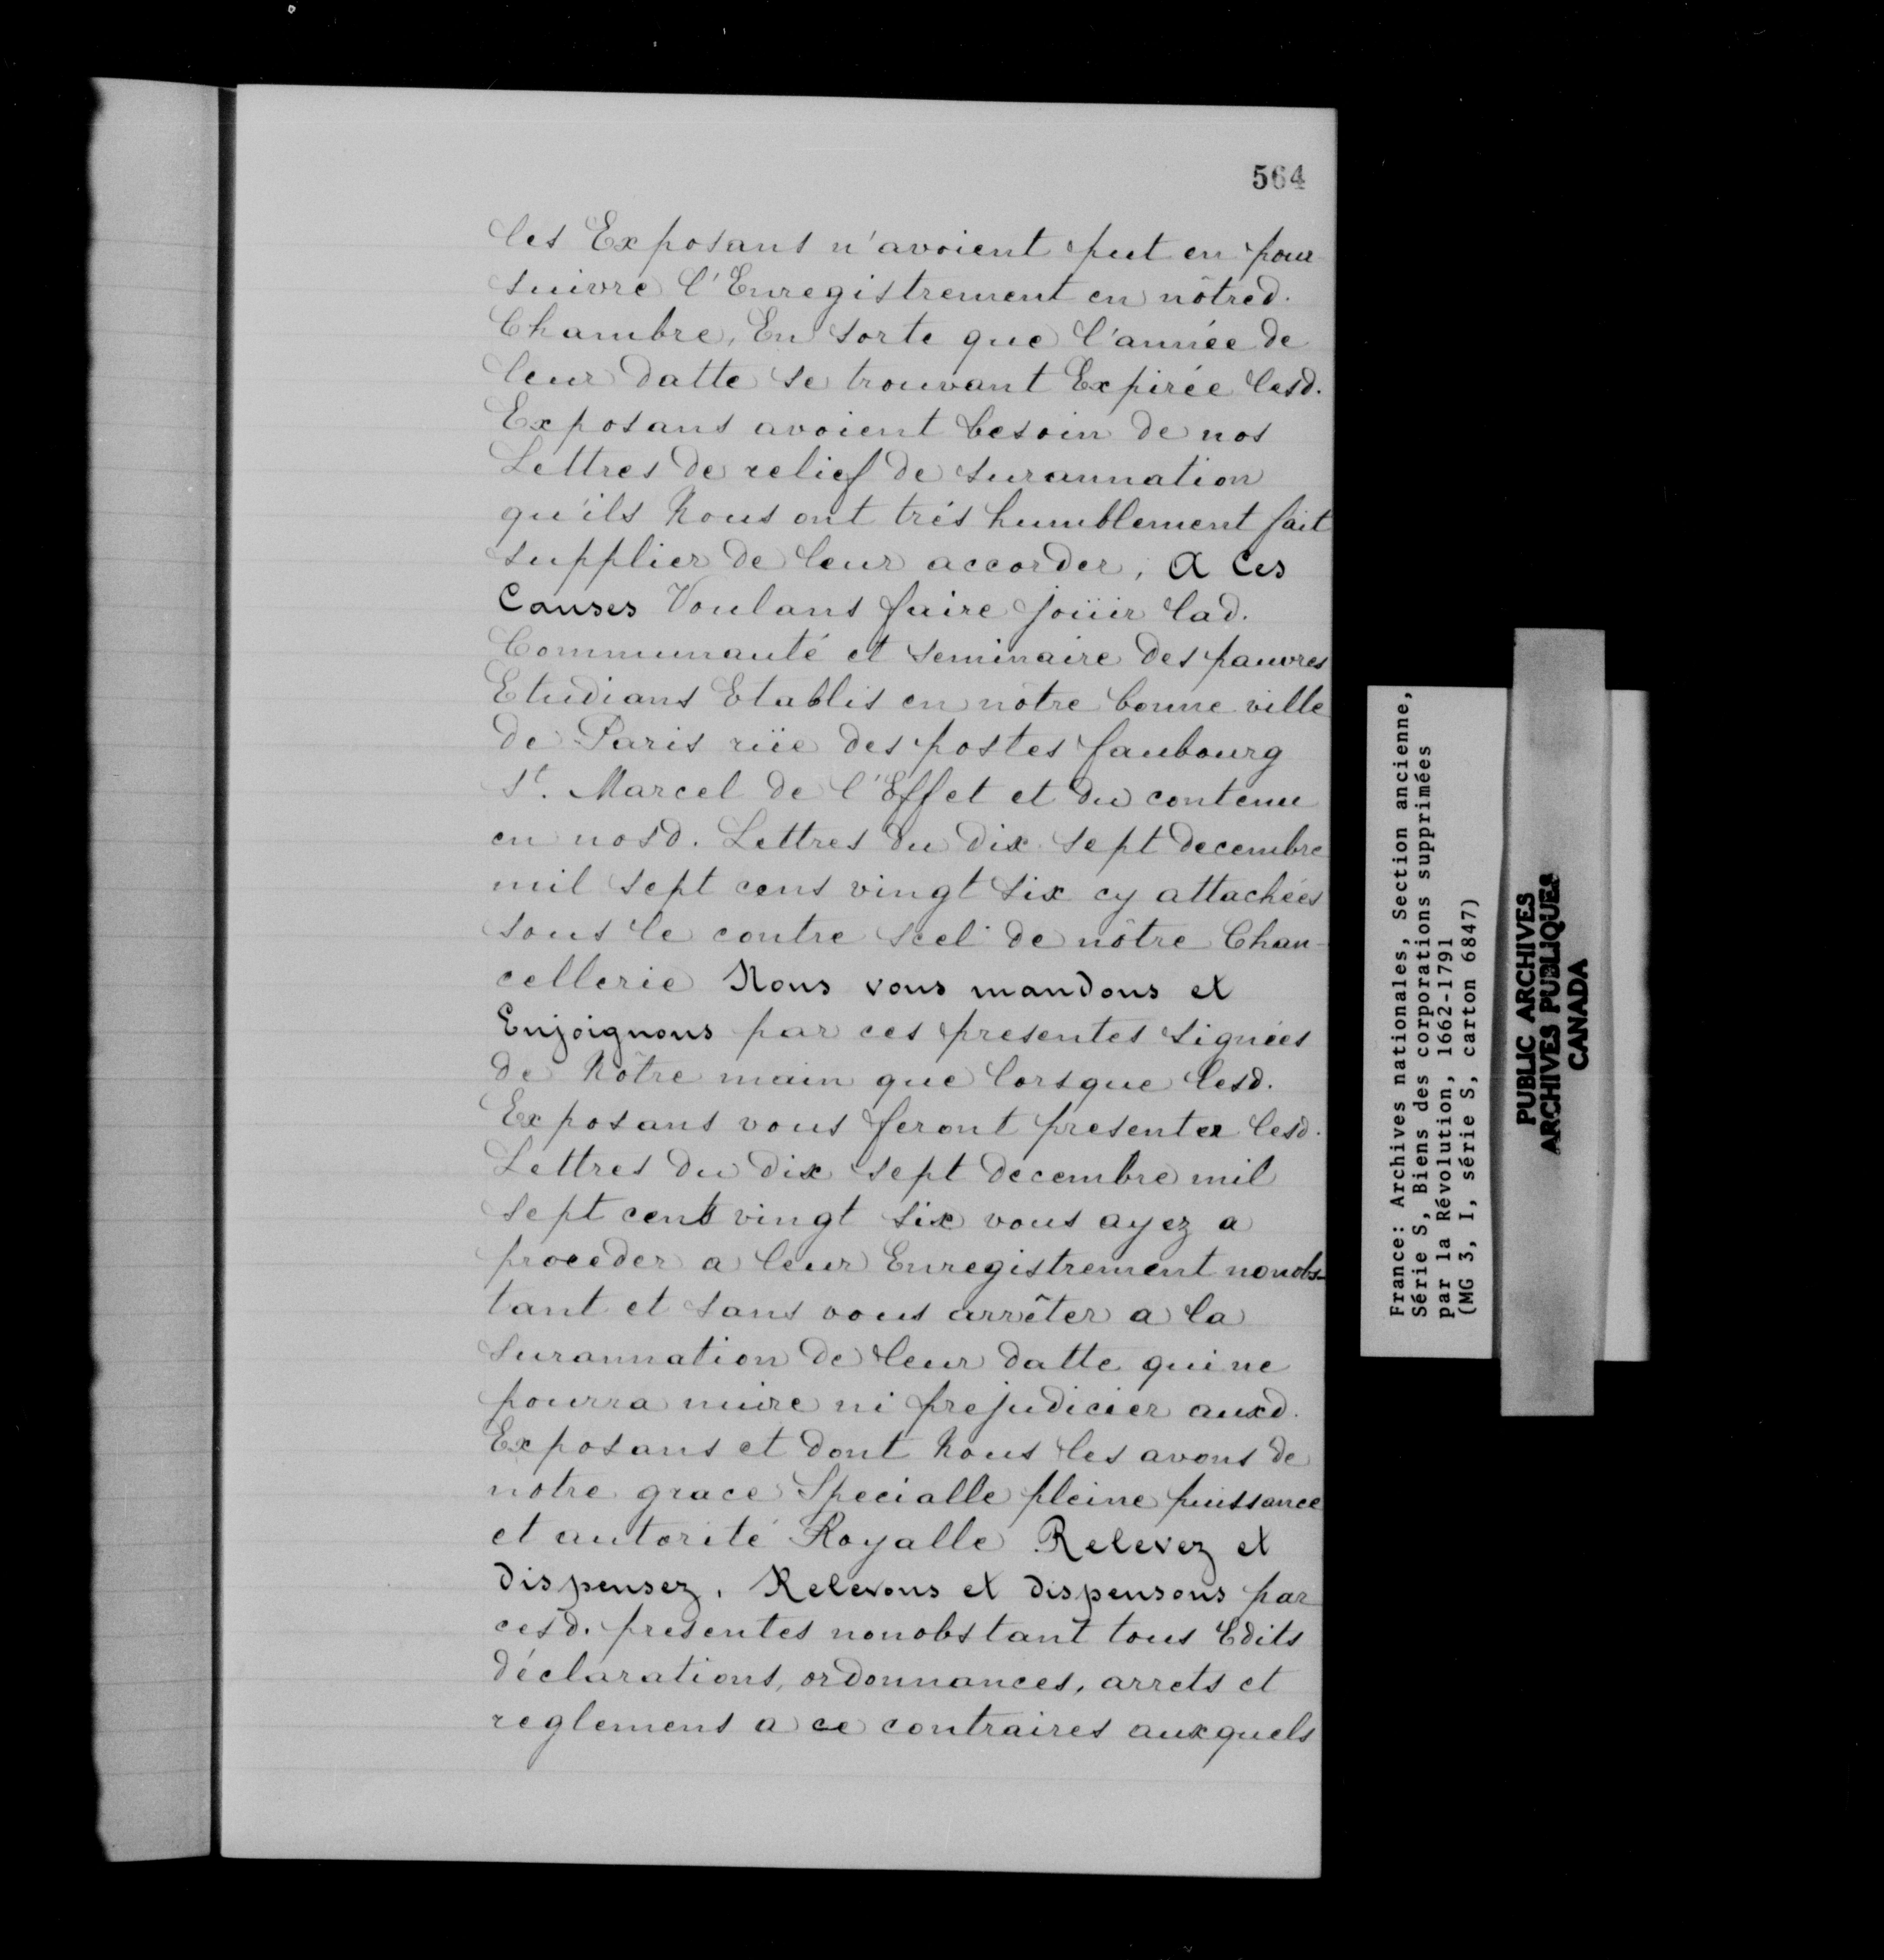 564
les Exposans n'avoient put en pour
suivre l'Enregistrement en nôtred.
Chambre, En sorte que l'année de
leur datte se trouvant Expirée lesd.
Exposans avoient besoin de nos
Lettres de relief de surannation
qu'ils Nous ont trés humblement fait
supplier de leur accorder, A Ces
Causes Voulans faire joüir lad.
Communauté et seminaire des pauvres
Etudians Etablis en nôtre bonne ville
de Paris rüe des postes faubourg
St. Marcel de l'Effet et du contenu
en nosd. Lettres du dix sept decembre
mil sept cens vingt six cy attachées
sous le contre scel de nôtre Chan-
cellerie Nous vous mandons et
Enjoignons par ces presentes signées
de Nôtre main que lorsque lesd.
Exposans vous feront presenter lesd.
Lettres du dix sept decembre mil
sept cent vingt six vous ayez a
proceder a leur Enregistrement nonobs-
tant et sans vous arrêter a la
surannation de leur datte qui ne
pourra nuire ni prejudicier auxd.
Exposans et dont Nous les avons de
notre grace Specialle pleine puissance
et autorité Royalle Relevez et
dispensez, Relevons et dispensons par
cesd. presentes nonobstant tous Edits
déclarations, ordonnances, arrets et
reglemens a ce contraires auxquels
France: Archives nationales, Section ancienne,
Série S, Biens des corporations supprimées
par la Révolution, 1662-1791
(MG 3, I, série S, carton 6847)
PUBLIC ARCHIVES
ARCHIVES PUBLIQUES
CANADA